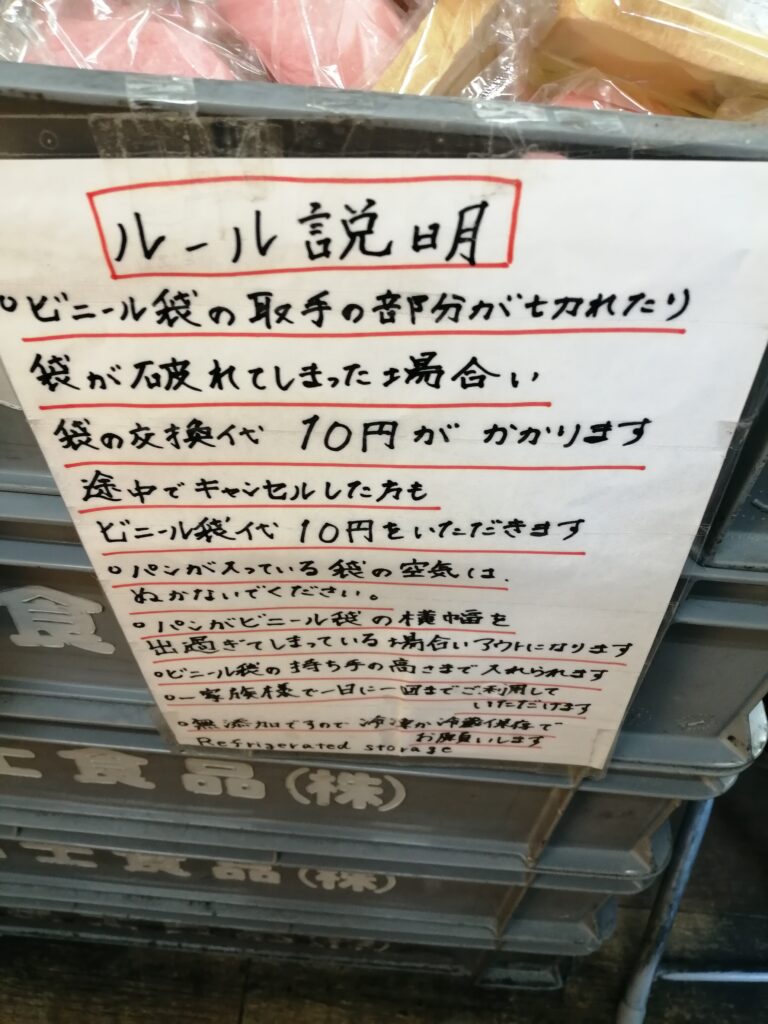 ルール説明
○ビニール袋の取手の部分が切れたり
袋が破れてしまった場合い
袋の交換代 10円が かかります
途中でキャンセルした方も
ビニール袋代 10円をいただきます
○パンが入っている袋の空気は、
ぬかないでください。
○パンがビニール袋の横幅を
出過ぎてしまっている場合いアウトになります
○ビニール袋の持ち手の高さまで入れられます
○一家族様で一日に一回までご利用して
いただけます
○無添加ですので 冷凍か冷蔵保存で
お願いします
Refrigerated storage
食
工食品(株)
工食品(株)